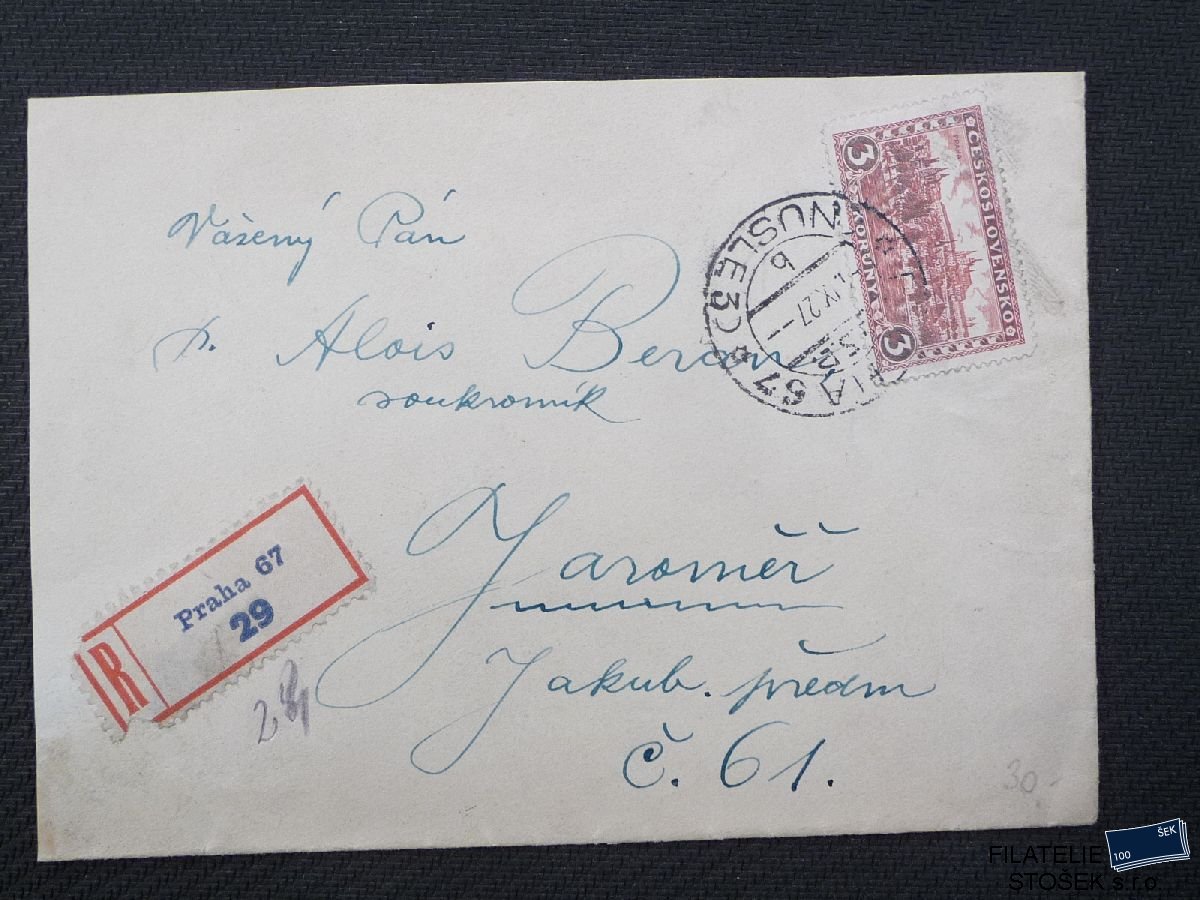 Vážený Pán
p. Alois Beran
soukromník
Jaroměř
Jakub. předm
č. 61.
ČESKOSLOVENSKO
3
KORUNY
3
NUSLE 3
67
b
IX.27
R
Praha 67
29
30.-
FILATELIE
STOŠEK s.r.o.
100
ŠEK